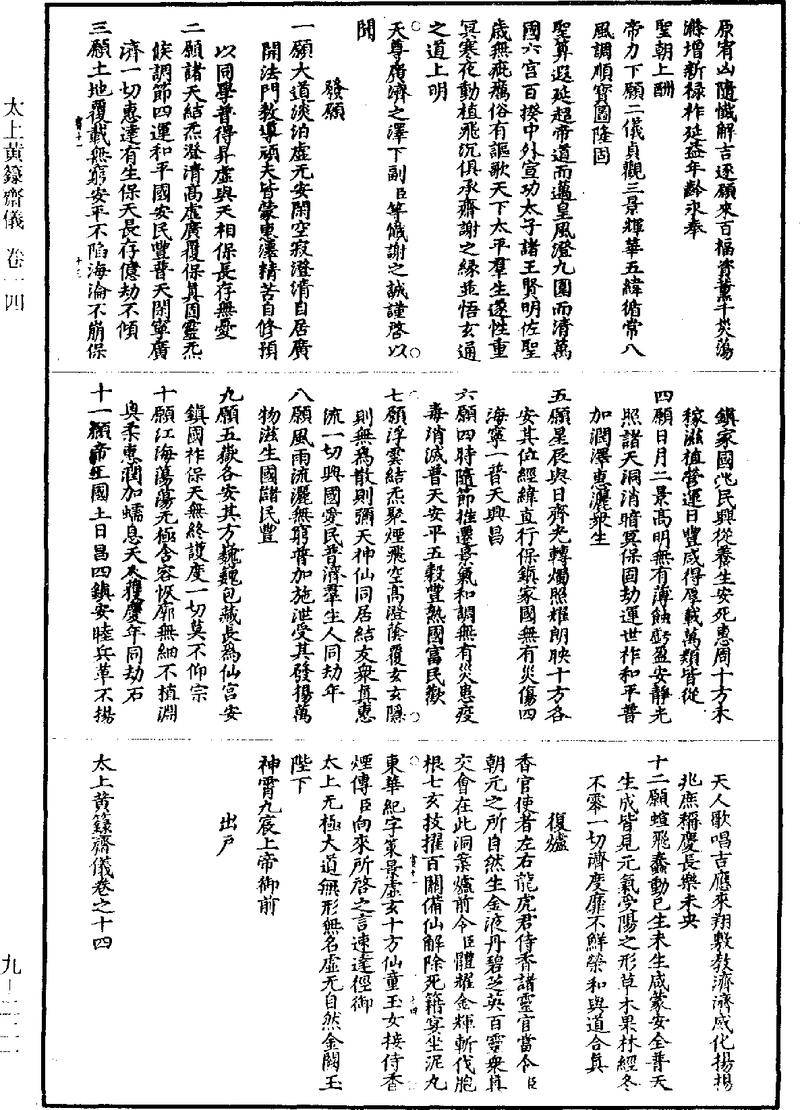 原宥凶隨懺解吉逐願來百福資薰千災蕩
滌增新祿祚延益年齡永奉
聖朝上酬
帝力下願二儀貞觀三景輝華五緯循常八
風調順寶圖隆固
聖筭遐延超帝道而邁皇風澄九圍而清萬
國六宮百揆中外宣功太子諸王賢明佐聖
歲無疵癘俗有謳歌天下太平羣生遂性重
冥寒夜動植飛沉俱承齋謝之緣並悟玄通
之道上明
天尊廣濟之澤下副臣等懺謝之誠謹啓以
聞
發願
一願大道淡泊虛无安閑空寂澄清自居廣
開法門教導頑夫皆蒙惠澤精苦自修預
以同學普得昇虛與天相保長存無憂
二願諸天結炁澄清高虛廣覆保真固靈炁
候調節四運和平國安民豐普天閑寧廣
濟一切惠逮有生保天長存億劫不傾
三願土地覆載無窮安平不陷海淪不崩保
鎮家國兆民興從養生安死惠周十方禾
稼滋植營運日豐咸得厚載萬類皆從
四願日月二景高明無有薄蝕虧盈安靜光
照諸天洞消暗冥保固劫運世祚和平普
加潤澤惠灑衆生
五願星辰與日齊光轉燭照耀朗映十方各
安其位經緯直行保鎮家國無有災傷四
海寧一普天興昌
六願四時隨節推遷景氣和調無有災患疫
毒消滅普天安平五穀豐熟國富民歡
七願浮雲結炁聚煙飛空高澄蔭覆玄玄隱
則無為散則彌天神仙同居結友衆真惠
流一切興國愛民普濟羣生人同劫年
八願風雨流灑無窮普加施泄受其發揚萬
物滋生國儲民豐
九願五嶽各安其方巍巍包藏長為仙宮安
鎮國祚保天無終護度一切莫不仰宗
十願江海蕩蕩无極含容恢廓無細不摘淵
奧柔惠潤加蠕息天人獲慶年同劫石
十一願帝王國土日昌四鎮安睦兵革不揚
天人歌唱吉應來翔敷教濟濟咸化揚揚
兆庶稱慶長樂未央
十二願蝖飛蠢動已生未生咸蒙安全普天
生成皆見元氣受陽之形草木果林經冬
不零一切濟度靡不鮮榮和與道合真
復爐
香官使者左右龍虎君侍香諸靈官當令臣
朝元之所自然生金液丹碧芝英百靈衆真
交會在此洞案爐前令臣體耀金輝斬伐胞
根七玄拔擢百關備仙解除死籍宴坐泥丸
東華紀字策景虛玄十方仙童玉女接侍香
煙傳臣向來所啓之言速達徑御
太上无極大道無形無名虛无自然金闕玉
陛下
神霄九宸上帝御前
出戶
太上黃籙齋儀卷之十四
太上黃籙齋儀 卷一四
九—二二一